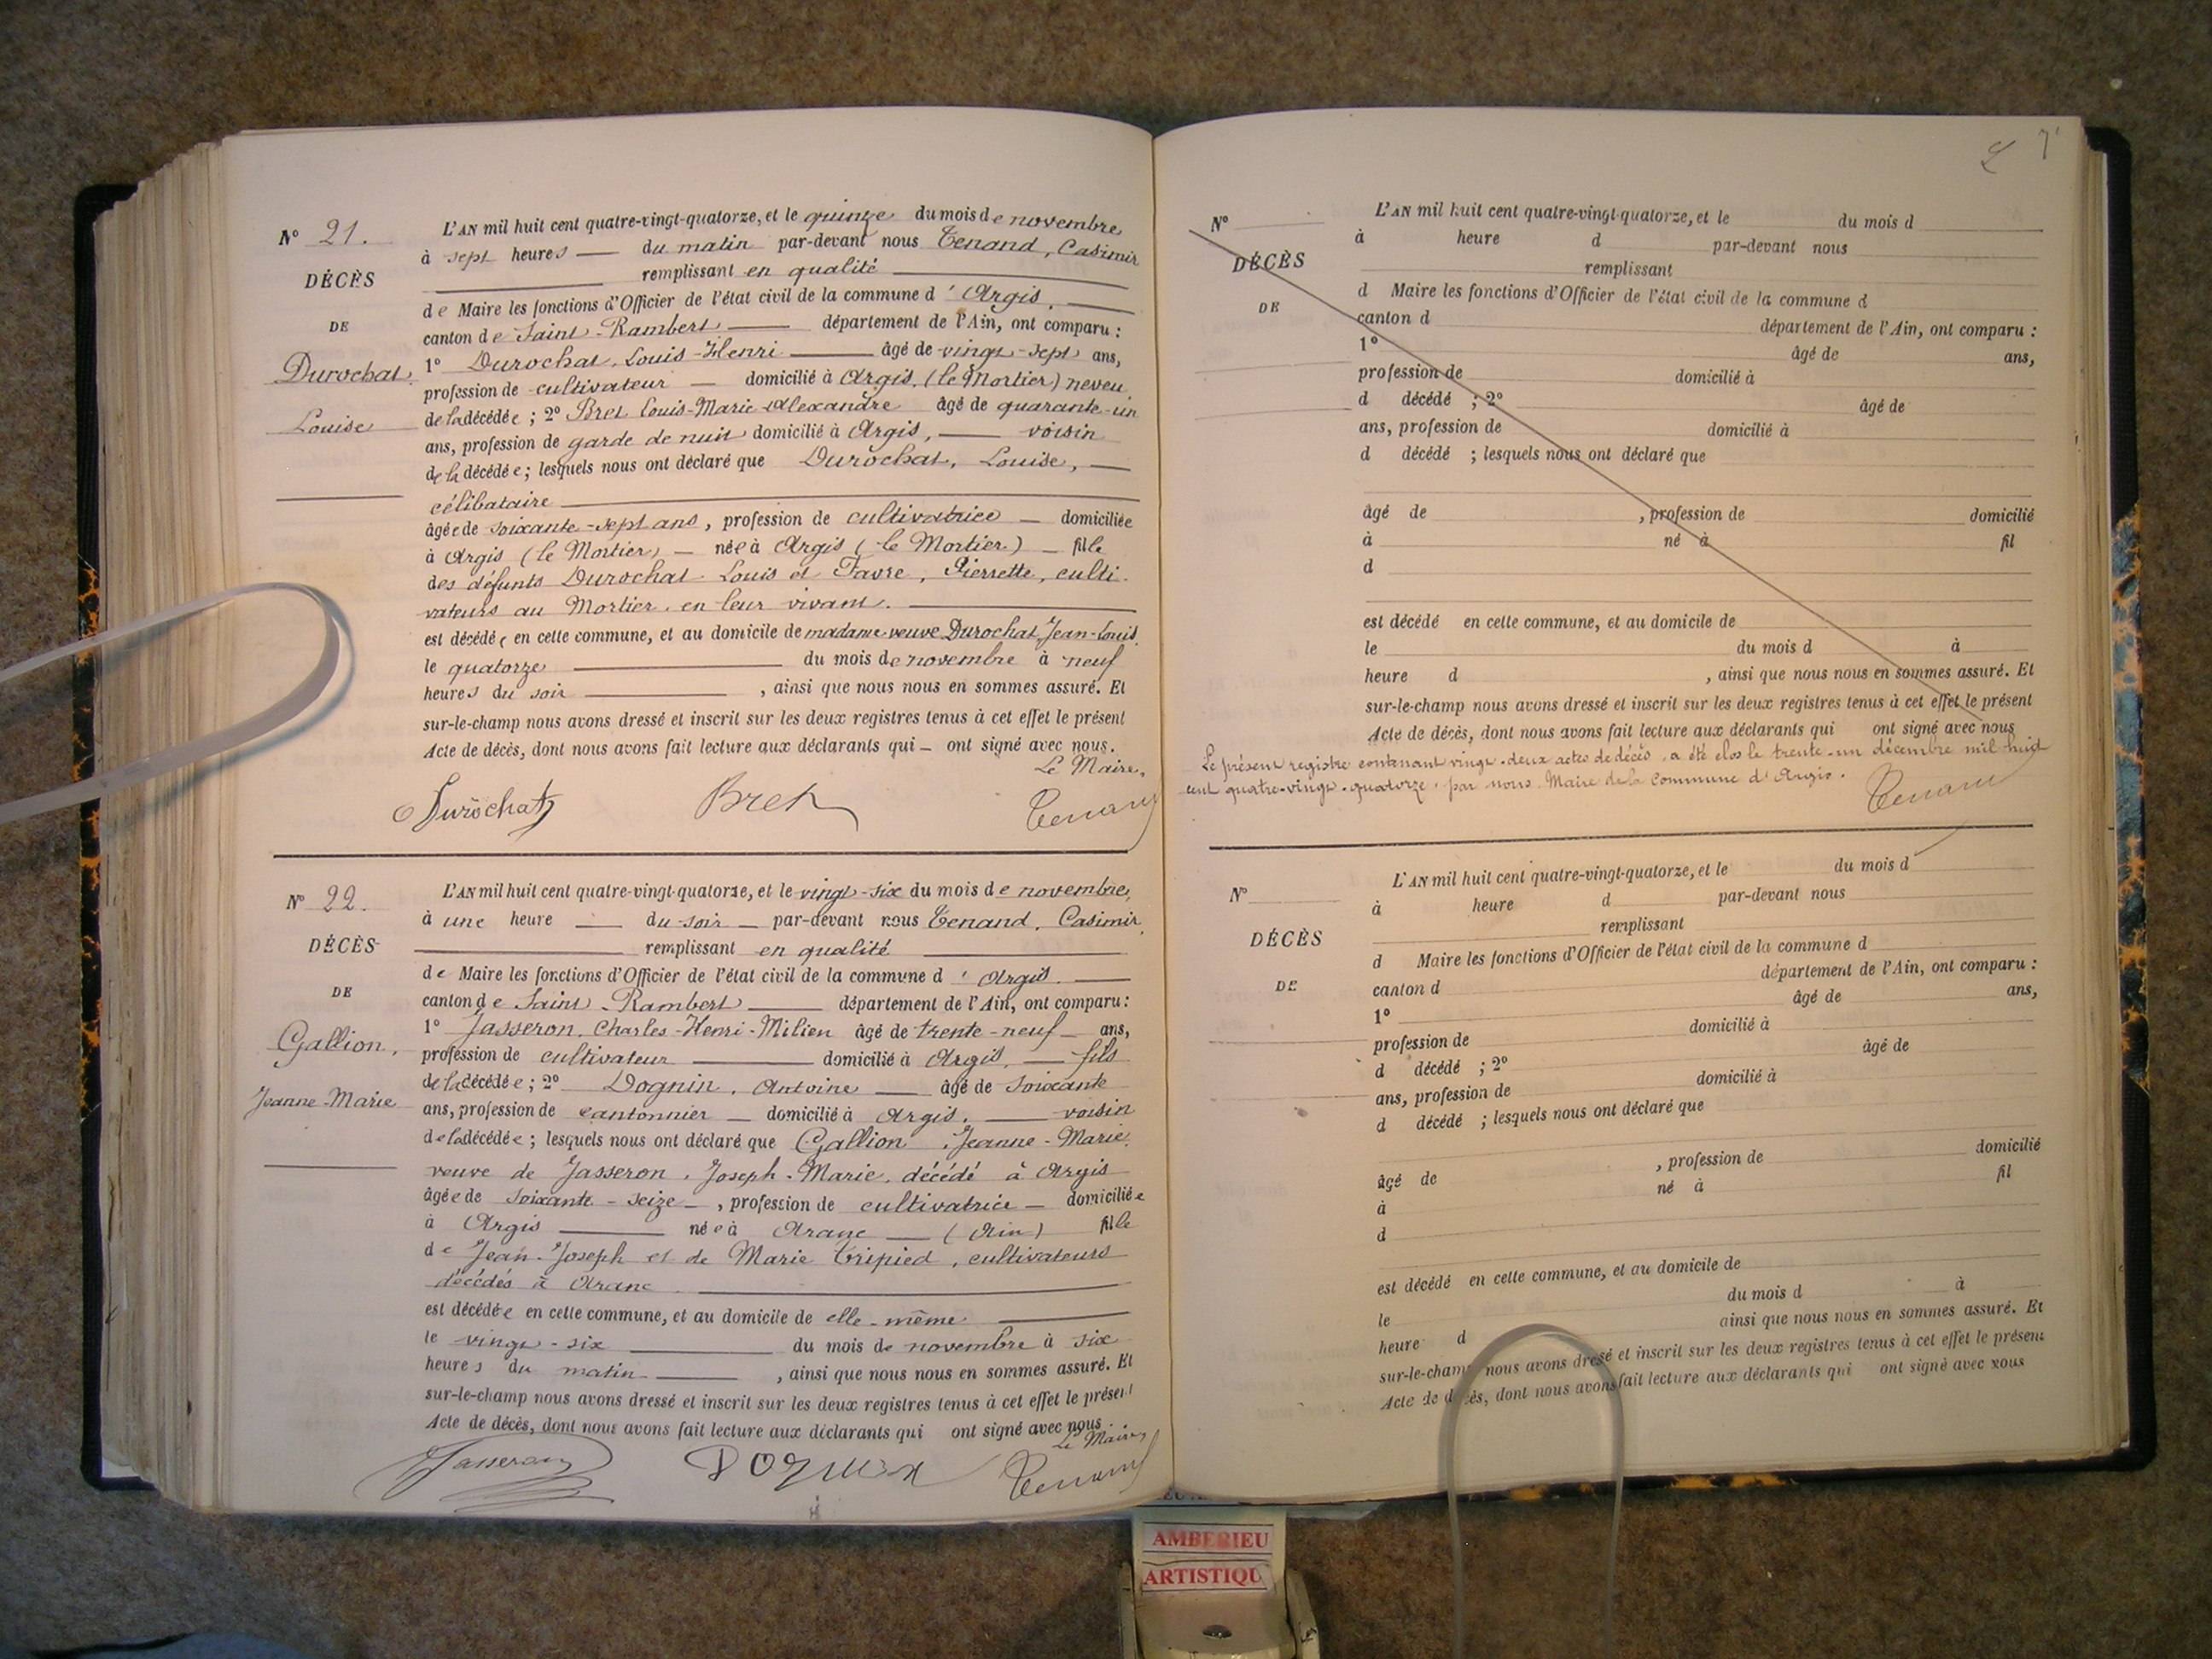 N° 21.
DÉCÈS
DE
Durochat,
Louise
L'AN mil huit cent quatre-vingt-quatorze, et le quinze du mois de novembre
à sept heures du matin par-devant nous Tenand, Casimir
remplissant en qualité
de Maire les fonctions d'Officier de l'état civil de la commune d'Argis,
canton de Saint-Rambert département de l'Ain, ont comparu :
1° Durochat, Louis-Henri âgé de vingt-sept ans,
profession de cultivateur domicilié à Argis, (le Mortier) neveu
de la décédée ; 2° Bret Louis-Marie-Alexandre âgé de quarante-un
ans, profession de garde de nuit domicilié à Argis, voisin
de la décédée ; lesquels nous ont déclaré que Durochat, Louise,
célibataire
âgée de soixante-sept ans, profession de cultivatrice domiciliée
à Argis (le Mortier) née à Argis (le Mortier) fille
des défunts Durochat Louis et Favre, Pierrette, culti-
vateurs au Mortier, en leur vivant.
est décédée en cette commune, et au domicile de madame veuve Durochat, Jean-Louis
le quatorze du mois de novembre à neuf
heures du soir , ainsi que nous nous en sommes assuré. Et
sur-le-champ nous avons dressé et inscrit sur les deux registres tenus à cet effet le présent
Acte de décès, dont nous avons fait lecture aux déclarants qui ont signé avec nous.
Le Maire,
Durochat Bret Tenand
N° 22.
DÉCÈS
DE
Gallion,
Jeanne-Marie
L'AN mil huit cent quatre-vingt-quatorze, et le vingt-six du mois de novembre,
à une heure du soir par-devant nous Tenand, Casimir
remplissant en qualité
de Maire les fonctions d'Officier de l'état civil de la commune d'Argis.
canton de Saint-Rambert département de l'Ain, ont comparu :
1° Jasseron, Charles-Henri-Milien âgé de trente-neuf ans,
profession de cultivateur domicilié à Argis, fils
de la décédée ; 2° Dognin, Antoine âgé de soixante
ans, profession de cantonnier domicilié à Argis, voisin
de la décédée ; lesquels nous ont déclaré que Gallion, Jeanne-Marie,
veuve de Jasseron, Joseph-Marie, décédé à Argis
âgée de soixante-seize , profession de cultivatrice domiciliée
à Argis née à Aranc (Ain) fille
de Jean-Joseph et de Marie Tripied, cultivateurs
décédés à Aranc
est décédée en cette commune, et au domicile de elle-même
le vingt-six du mois de novembre à six
heures du matin , ainsi que nous nous en sommes assuré. Et
sur-le-champ nous avons dressé et inscrit sur les deux registres tenus à cet effet le présent
Acte de décès, dont nous avons fait lecture aux déclarants qui ont signé avec nous.
Le Maire,
Jasseron Dognin Tenand
N°
DÉCÈS
DE
L'AN mil huit cent quatre-vingt-quatorze, et le du mois d
à heure d par-devant nous
remplissant
d Maire les fonctions d'Officier de l'état civil de la commune d
canton d département de l'Ain, ont comparu :
1° âgé de ans,
profession de domicilié à
d décédé ; 2° âgé de
ans, profession de domicilié à
d décédé ; lesquels nous ont déclaré que
âgé de , profession de domicilié
à né à fil
d
est décédé en cette commune, et au domicile de
le du mois d à
heure d , ainsi que nous nous en sommes assuré. Et
sur-le-champ nous avons dressé et inscrit sur les deux registres tenus à cet effet le présent
Acte de décès, dont nous avons fait lecture aux déclarants qui ont signé avec nous
Le présent registre contenant vingt-deux actes de décès, a été clos le trente-un décembre mil huit
cent quatre-vingt-quatorze, par nous Maire de la Commune d'Argis.
Tenand
N°
DÉCÈS
DE
L'AN mil huit cent quatre-vingt-quatorze, et le du mois d
à heure d par-devant nous
remplissant
d Maire les fonctions d'Officier de l'état civil de la commune d
canton d département de l'Ain, ont comparu :
1° âgé de ans,
profession de domicilié à
d décédé ; 2° âgé de
ans, profession de domicilié à
d décédé ; lesquels nous ont déclaré que
âgé de , profession de domicilié
à né à fil
d
est décédé en cette commune, et au domicile de
le du mois d à
heure d ainsi que nous nous en sommes assuré. Et
sur-le-champ nous avons dressé et inscrit sur les deux registres tenus à cet effet le présent
Acte de décès, dont nous avons fait lecture aux déclarants qui ont signé avec nous
AMBERIEU
ARTISTIQU